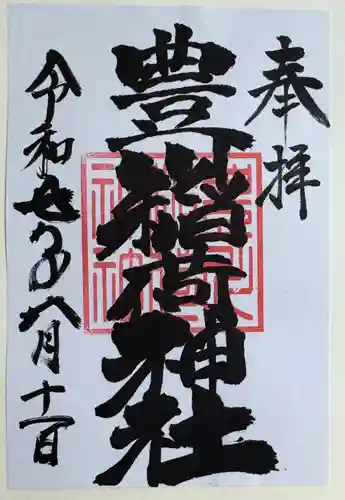 奉拝
豊稲荷神社
令和七年八月十一日